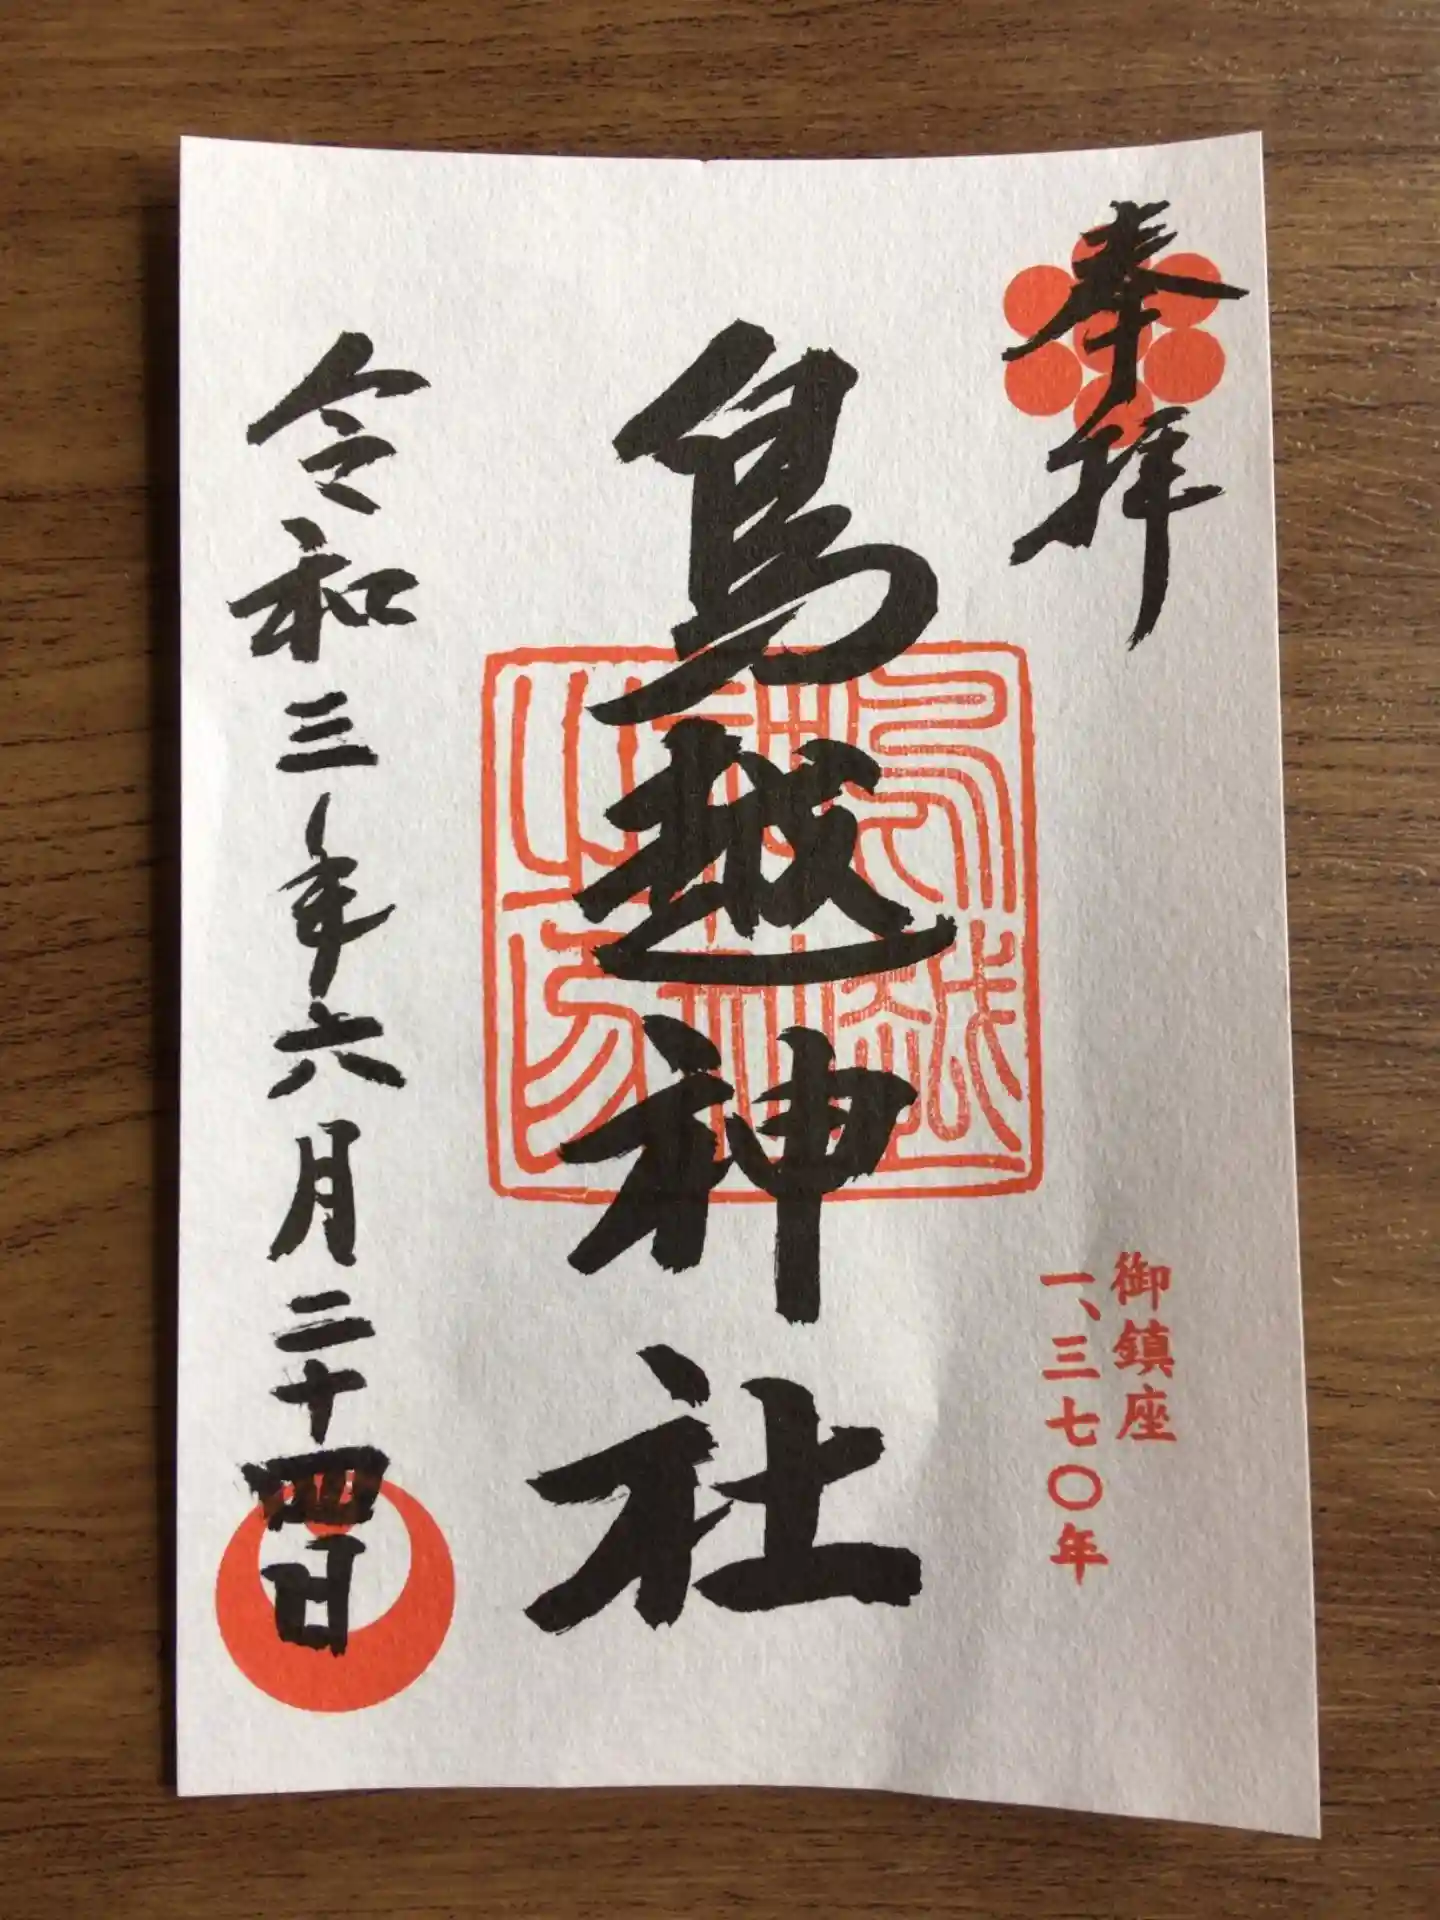 奉拝
御鎮座
一、三七〇年
鳥越神社
令和三年六月二十四日